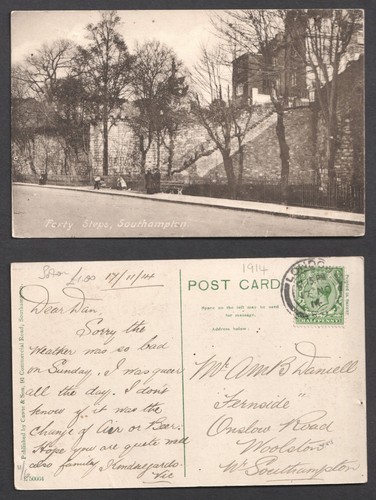 Forty Steps, Southampton
Soton £1.00 17/11/14
1914
POST CARD
Space on the left may be used
for message.
Address below:
LONDON
Dear Dan,
Sorry the
weather was so bad
on Sunday. I was queer
all the day. I don't
know if it was the
change of Air or Beer.
Hope you are quite well
also family, Kind regards.
Vic
Mr A M B Daniell
"Fernside"
Onslow Road
Woolston
Nr Southampton
Published by Cawte & Son, 91 Commercial Road, Southampton